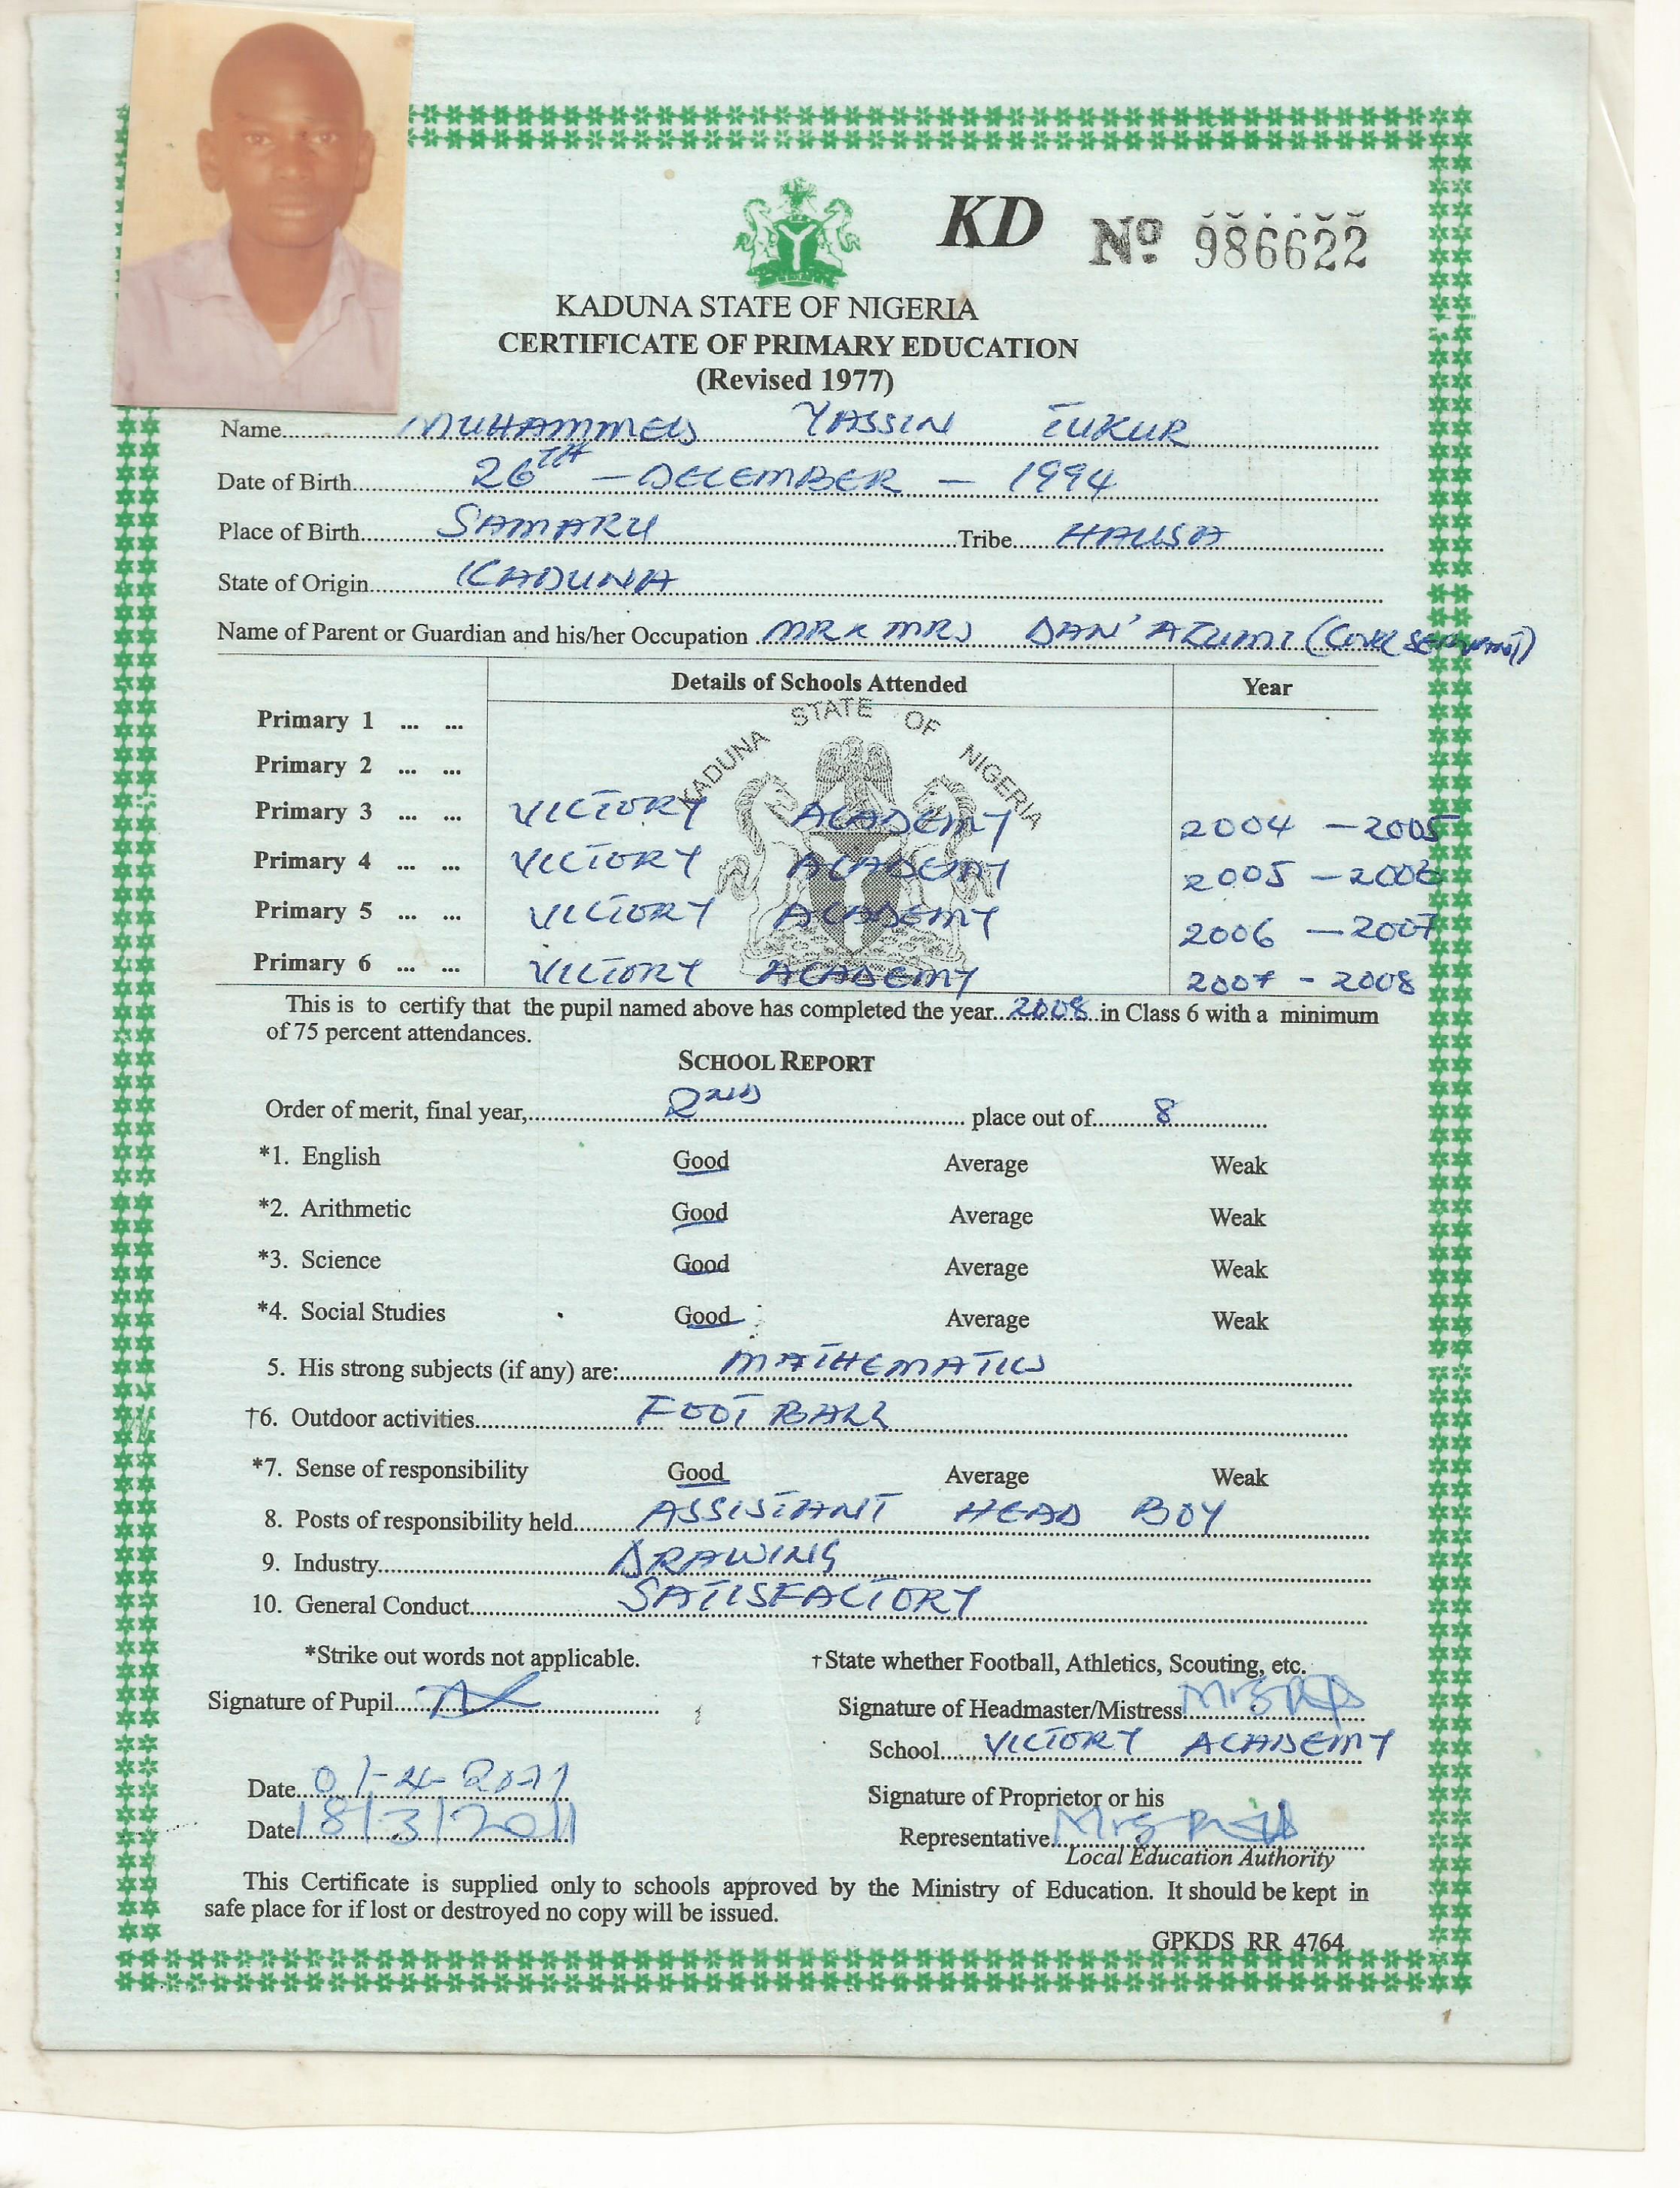 KD No. 986622
KADUNA STATE OF NIGERIA
CERTIFICATE OF PRIMARY EDUCATION
(Revised 1977)
Name MUHAMMED YASSIN TUKUR
Date of Birth 26TH - DECEMBER - 1994
Place of Birth SAMARU Tribe HAUSA
State of Origin KADUNA
Name of Parent or Guardian and his/her Occupation MR & MRS DAN'AZUMI (CIVIL SERVANT)
Details of Schools Attended Year
KADUNA STATE OF NIGERIA
Primary 1 ... ...
Primary 2 ... ...
Primary 3 ... ... VICTORY ACADEMY 2004 - 2005
Primary 4 ... ... VICTORY ACADEMY 2005 - 2006
Primary 5 ... ... VICTORY ACADEMY 2006 - 2007
Primary 6 ... ... VICTORY ACADEMY 2007 - 2008
This is to certify that the pupil named above has completed the year 2008 in Class 6 with a minimum
of 75 percent attendances.
SCHOOL REPORT
Order of merit, final year, 2ND place out of 8
*1. English Good Average Weak
*2. Arithmetic Good Average Weak
*3. Science Good Average Weak
*4. Social Studies Good Average Weak
5. His strong subjects (if any) are: MATHEMATICS
†6. Outdoor activities FOOT BALL
*7. Sense of responsibility Good Average Weak
8. Posts of responsibility held ASSISTANT HEAD BOY
9. Industry DRAWING
10. General Conduct SATISFACTORY
*Strike out words not applicable. †State whether Football, Athletics, Scouting, etc.
Signature of Pupil Signature of Headmaster/Mistress Mrs
School VICTORY ACADEMY
Date 01-4-2011 Signature of Proprietor or his
Date 18/3/2011 Representative Mrs
Local Education Authority
This Certificate is supplied only to schools approved by the Ministry of Education. It should be kept in
safe place for if lost or destroyed no copy will be issued.
GPKDS RR 4764